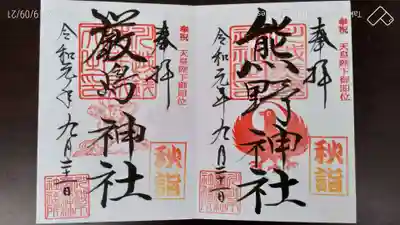 奉祝 天皇陛下御即位
奉拝
熊野神社
令和元年 九月二十一日
秋詣
奉祝 天皇陛下御即位
奉拝
厳島神社
令和元年 九月二十一日
秋詣
9/09/21